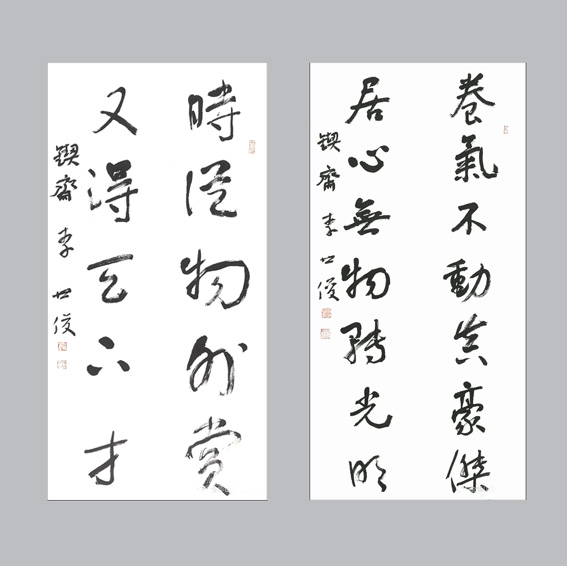 養氣不動真豪傑
居心無物轉光明
鍥齋 李世俊
時從物外賞
又得天下才
鍥齋 李世俊